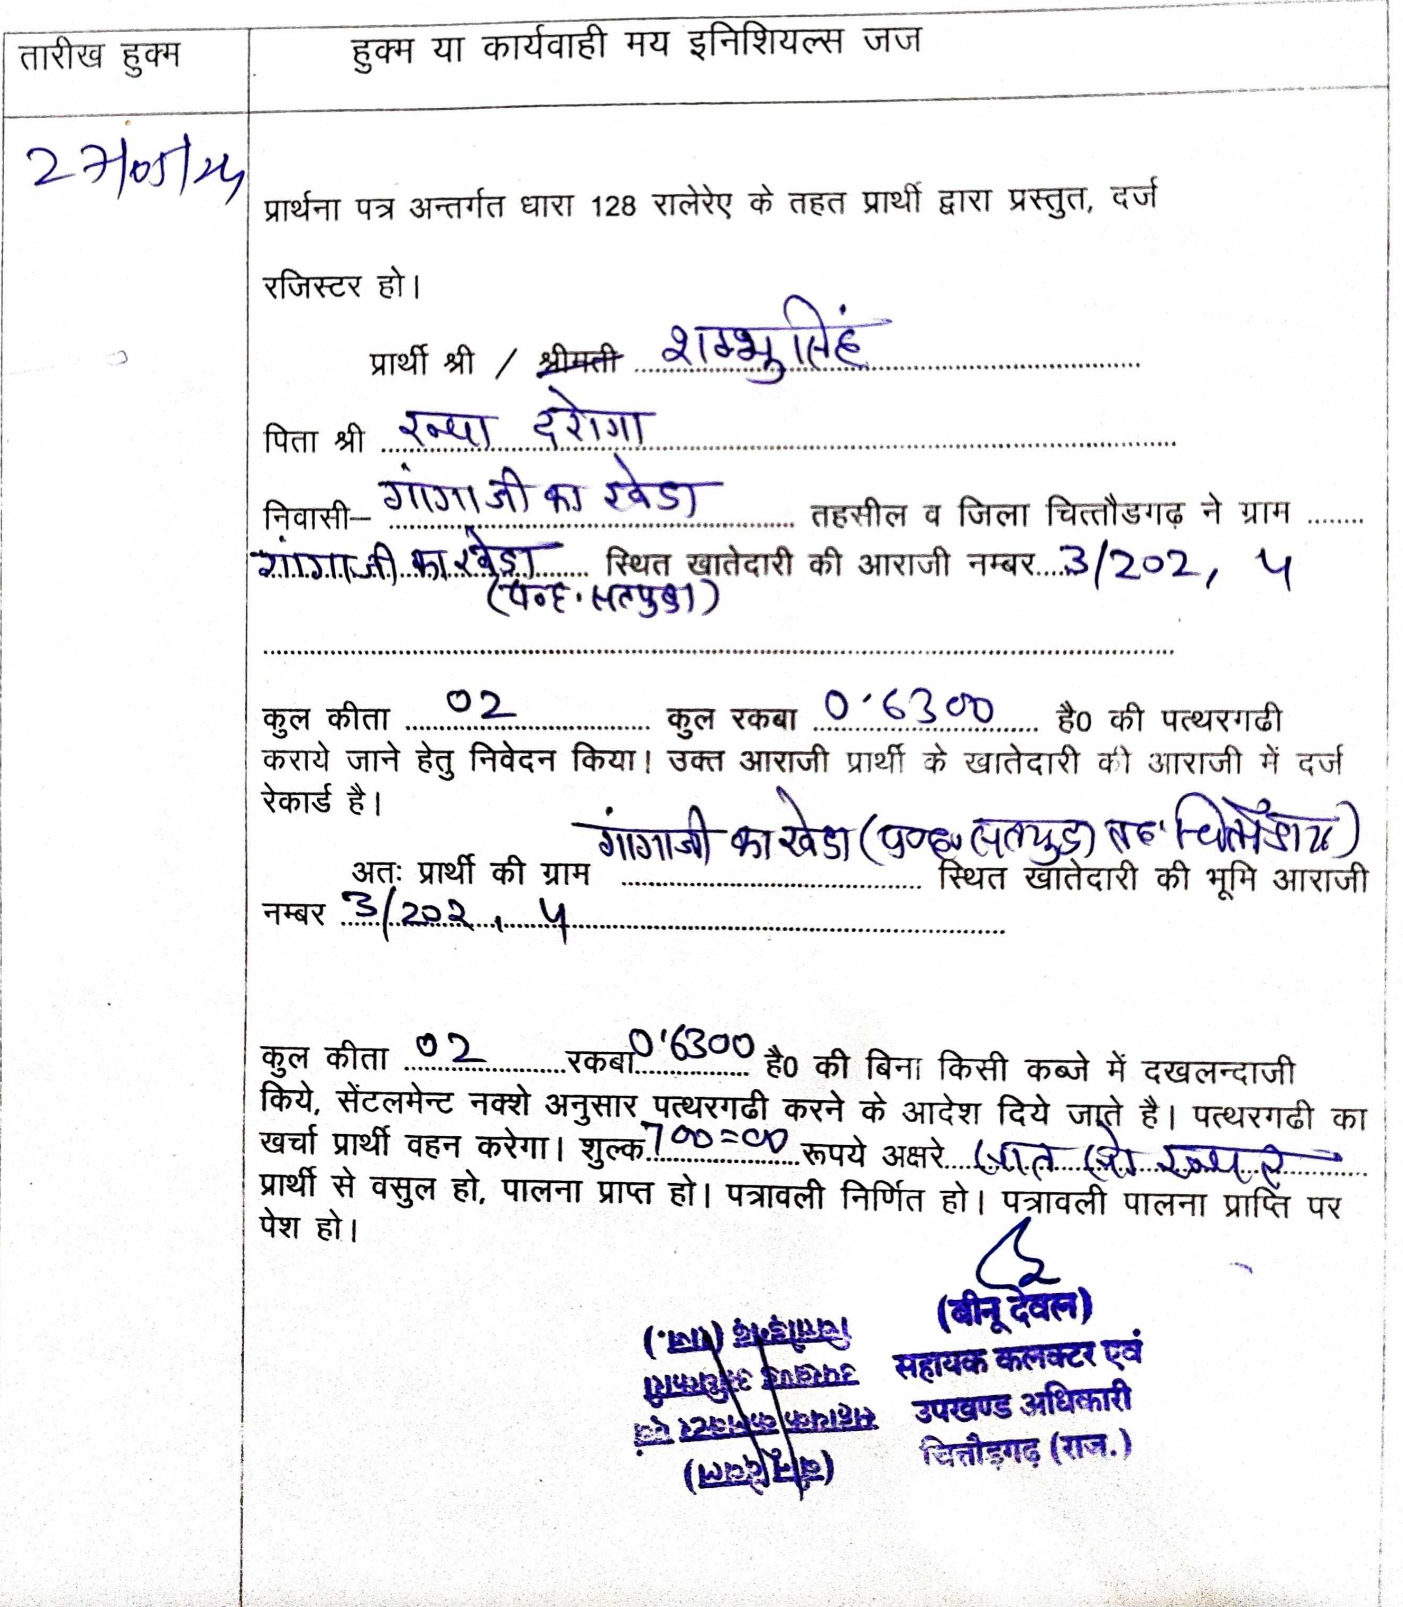 तारीख हुक्म
हुक्म या कार्यवाही मय इनिशियल्स जज
27/05/24
प्रार्थना पत्र अन्तर्गत धारा 128 रालेरेए के तहत प्रार्थी द्वारा प्रस्तुत, दर्ज
रजिस्टर हो।
प्रार्थी श्री / श्रीमती शम्भुसिंह
पिता श्री रूपा दरोगा
निवासी– गांगाजी का खेडा तहसील व जिला चित्तौडगढ़ ने ग्राम
गांगाजी का खेडा स्थित खातेदारी की आराजी नम्बर 3/202, 4
(प०ह० सतपुडा)
कुल कीता 02 कुल रकबा 0.6300 है0 की पत्थरगढी
कराये जाने हेतु निवेदन किया। उक्त आराजी प्रार्थी के खातेदारी की आराजी में दर्ज
रेकार्ड है।
गांगाजी का खेडा (प०ह० सतपुडा तह. चित्तौडगढ)
अतः प्रार्थी की ग्राम स्थित खातेदारी की भूमि आराजी
नम्बर 3/202, 4
कुल कीता 02 रकबा 0.6300 है0 की बिना किसी कब्जे में दखलन्दाजी
किये, सेंटलमेन्ट नक्शे अनुसार पत्थरगढी करने के आदेश दिये जाते है। पत्थरगढी का
खर्चा प्रार्थी वहन करेगा। शुल्क 700=00 रूपये अक्षरे सात सो रूपये
प्रार्थी से वसुल हो, पालना प्राप्त हो। पत्रावली निर्णित हो। पत्रावली पालना प्राप्ति पर
पेश हो।
(बीनू देवल)
सहायक कलक्टर एवं
उपखण्ड अधिकारी
चित्तौड़गढ़ (राज.)
(बीनू देवल)
सहायक कलक्टर एवं
उपखण्ड अधिकारी
चित्तौड़गढ़ (राज.)